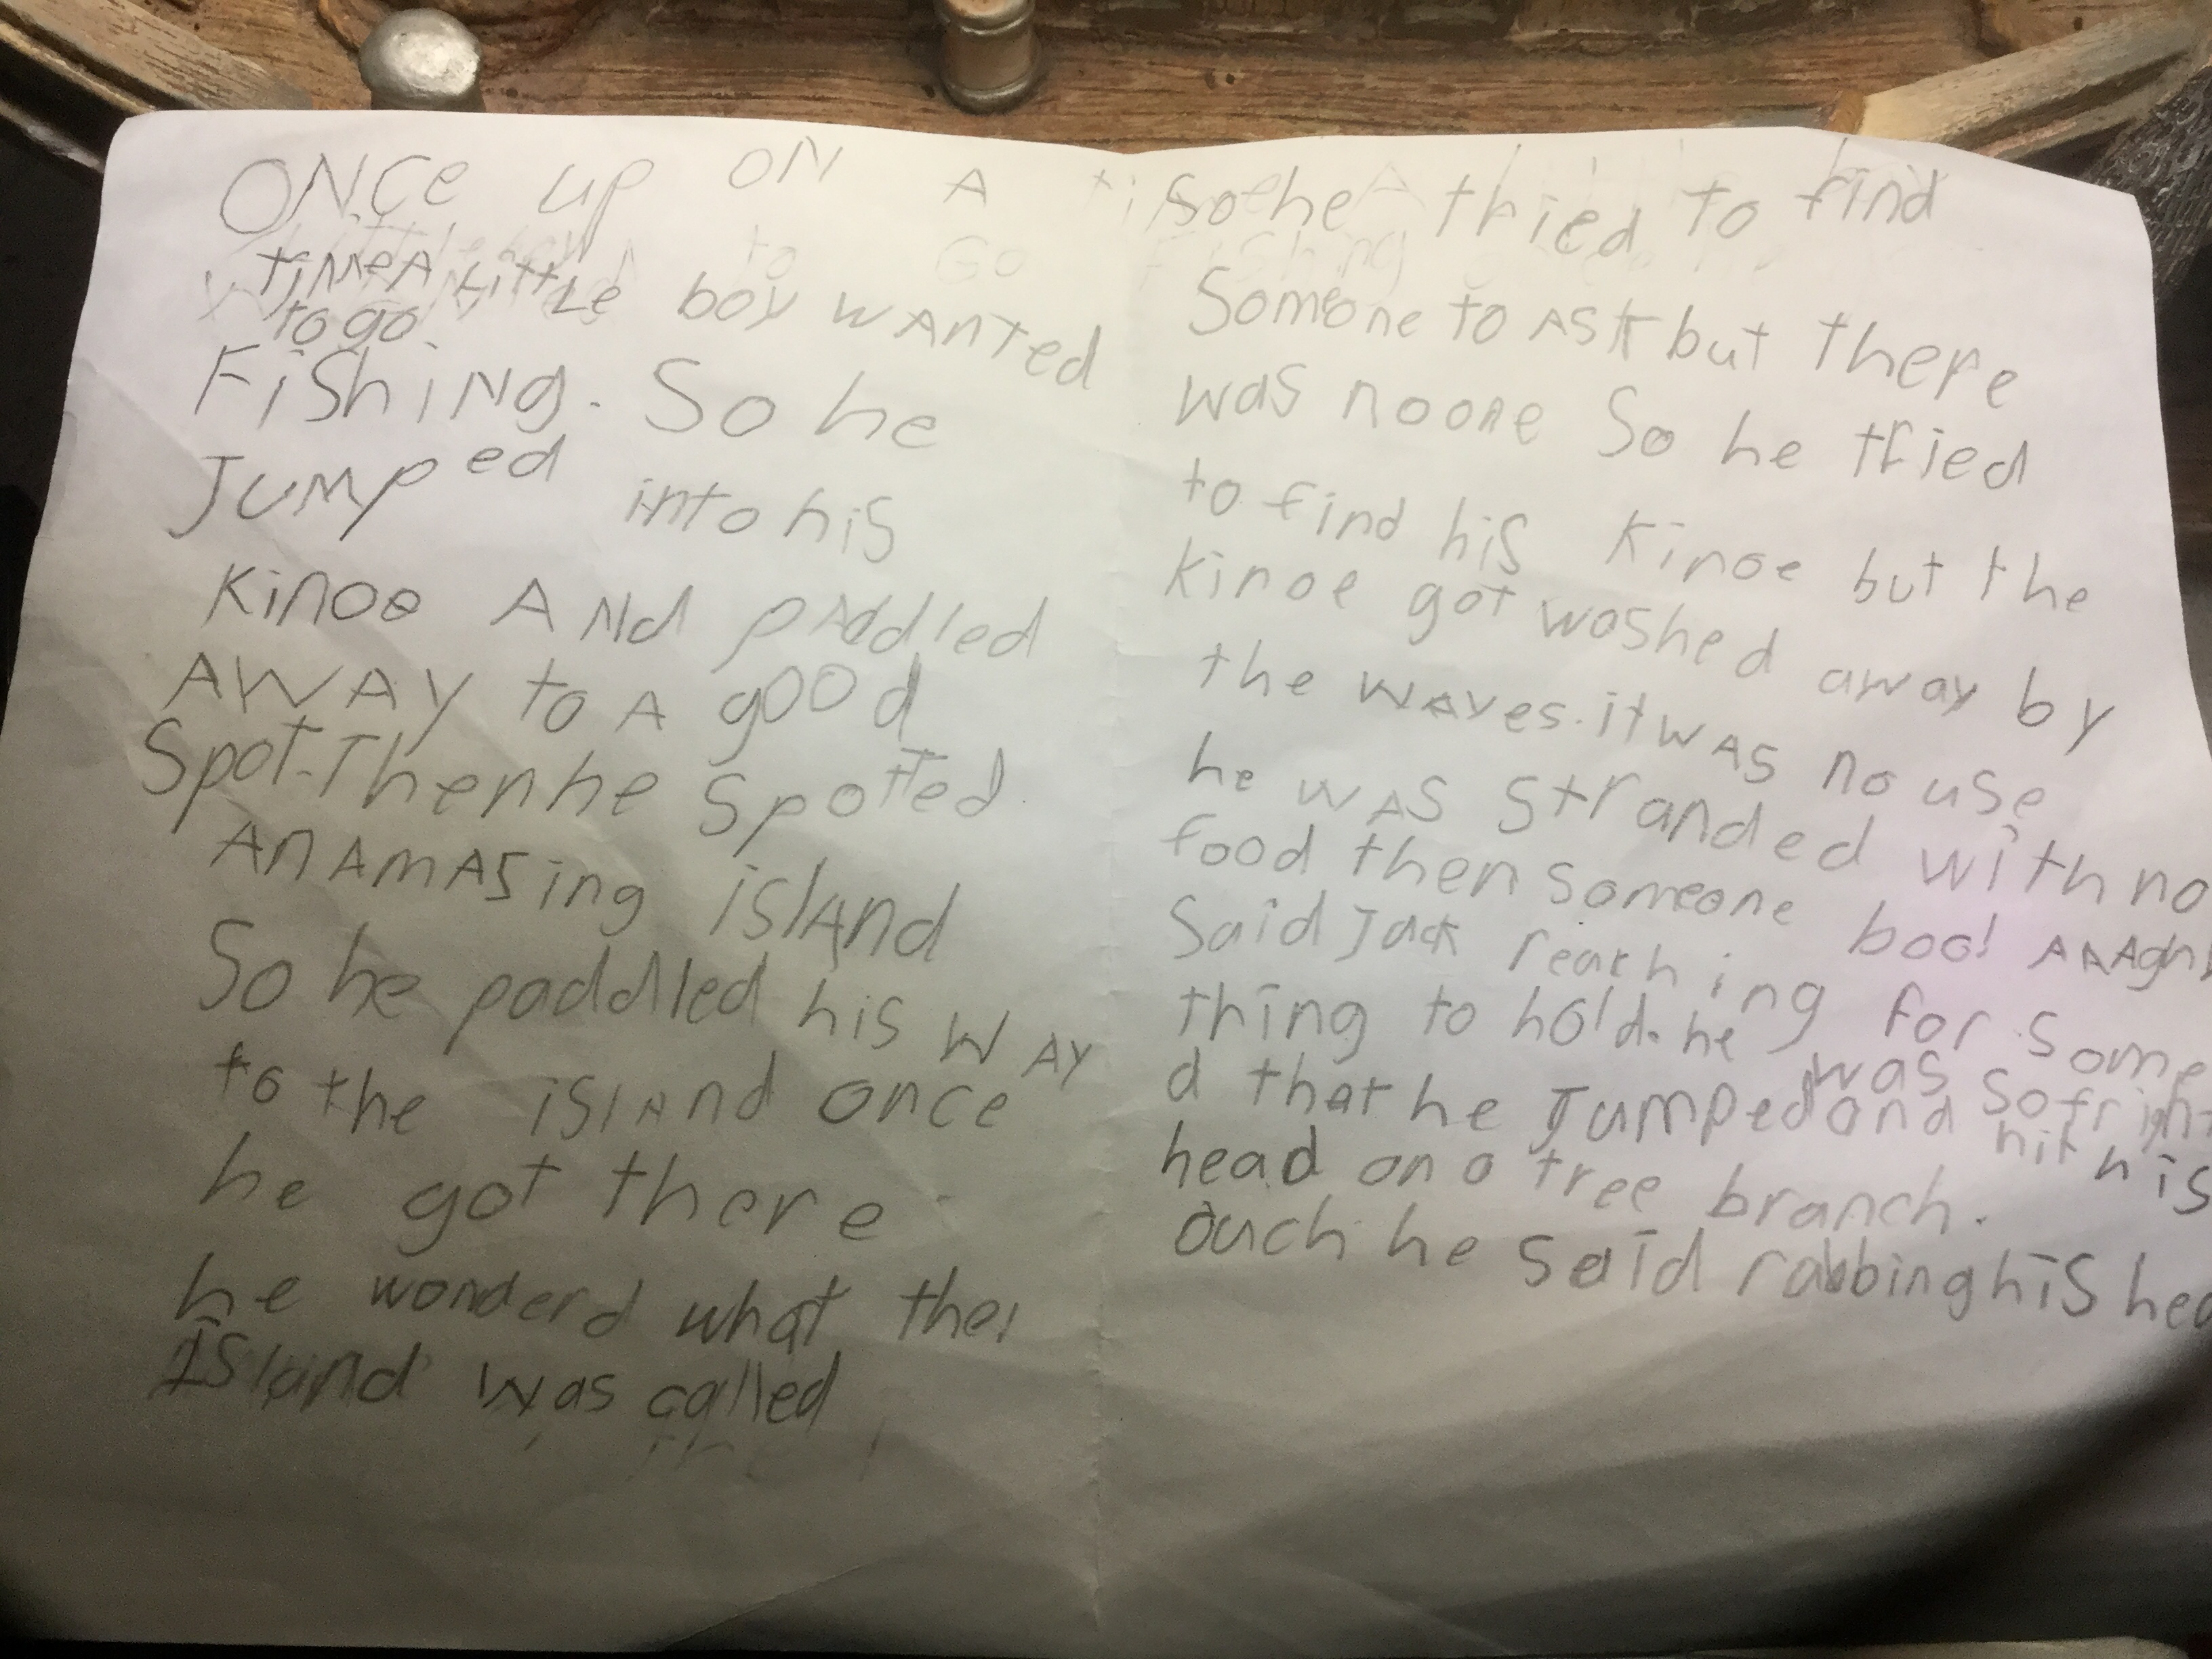 ONCe up ON A
timeA LittLe boy wAnTed
to go.
FiShiNg. So he
JuMPed into his
Kinoe ANd pAddled
AWAY to A gOOd
Spot. Then he Spotted
An AmASing islAnd
So he paddled his WAY
to the islAnd once
he got there
he wonderd what the
ISland was called
So he tried to find
Someone to ASk but there
was noone So he tried
to find his Kinoe but the
kinoe got washed away by
the wAves. it wAS no use
he wAS Stranded with no
food then Someone boo!
Said Jack reaching for Some
thing to hold. he was So fright
d that he Jumped and hit his
head on a tree branch.
Ouch he Said rubbing his